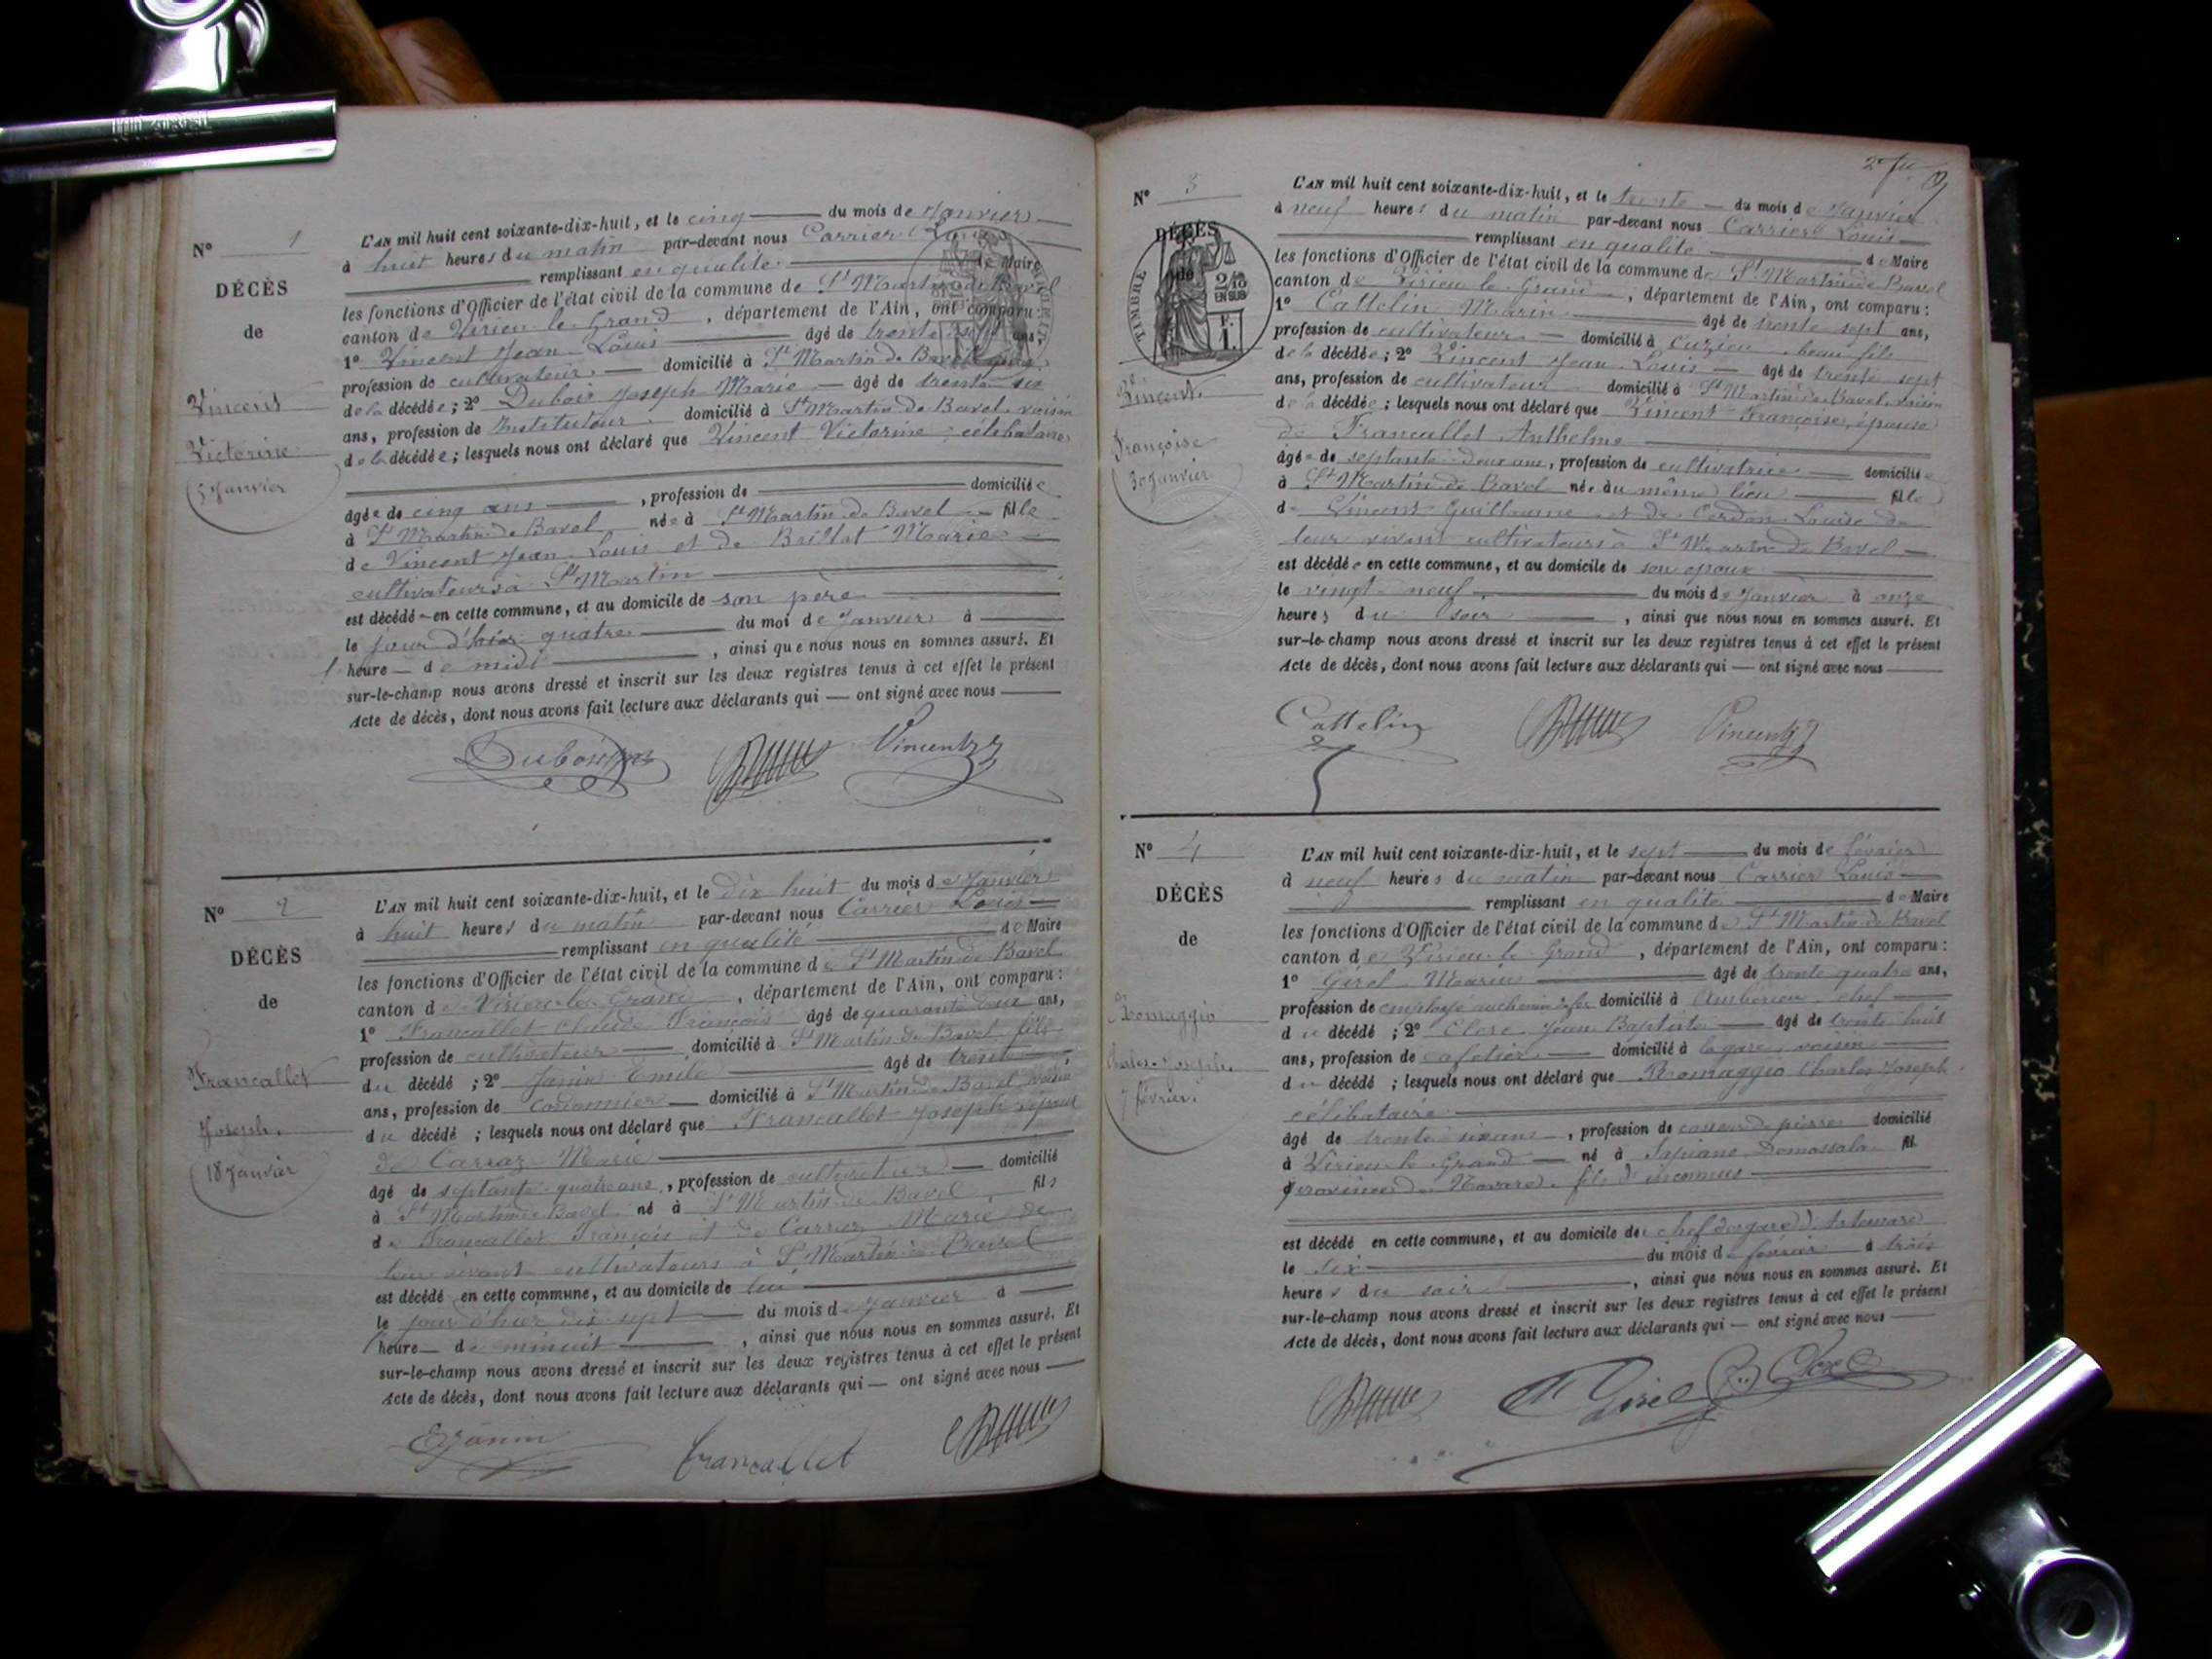 N° 1
DÉCÈS
de
Vincent
Victorine
(5 Janvier
L'AN mil huit cent soixante-dix-huit, et le cinq du mois de Janvier
à huit heures du matin par-devant nous Carrier Louis
remplissant en qualité de Maire
les fonctions d'Officier de l'état civil de la commune de St Martin de Bavel
canton de Virieu le Grand, département de l'Ain, ont comparu:
1° Vincent Jean Louis âgé de trente sept ans,
profession de cultivateur domicilié à St Martin de Bavel père
de la décédée; 2° Dubois Joseph Marie âgé de trente six
ans, profession de Instituteur domicilié à St Martin de Bavel, voisin
de la décédée; lesquels nous ont déclaré que Vincent Victorine, célibataire
âgée de cinq ans, profession de domiciliée
à St Martin de Bavel née à St Martin de Bavel fille
de Vincent Jean Louis et de Brillat Marie
cultivateurs à St Martin
est décédée en cette commune, et au domicile de son père
le jour d'hier quatre du moi de Janvier à
1 heure de midi, ainsi que nous nous en sommes assuré. Et
sur-le-champ nous avons dressé et inscrit sur les deux registres tenus à cet effet le présent
Acte de décès, dont nous avons fait lecture aux déclarants qui — ont signé avec nous
Dubois Vincent
N° 2
DÉCÈS
de
Francallet
Joseph.
(18 Janvier
L'AN mil huit cent soixante-dix-huit, et le dix huit du mois de Janvier
à huit heures du matin par-devant nous Carrier Louis
remplissant en qualité de Maire
les fonctions d'Officier de l'état civil de la commune de St Martin de Bavel
canton de Virieu le Grand, département de l'Ain, ont comparu:
1° Francallet Claude François âgé de quarante deux ans,
profession de cultivateur domicilié à St Martin de Bavel fils
du décédé; 2° Janin Emile âgé de trente
ans, profession de cordonnier domicilié à St Martin de Bavel voisin
du décédé; lesquels nous ont déclaré que Francallet Joseph époux
de Carraz Marie
âgé de septante quatre ans, profession de cultivateur domicilié
à St Martin de Bavel né à St Martin de Bavel fils
de Francallet François et de Carraz Marie de
leur vivant cultivateurs à St Martin de Bavel
est décédé en cette commune, et au domicile de lui
le jour d'hier dix sept du mois de Janvier à
heure de minuit, ainsi que nous nous en sommes assuré. Et
sur-le-champ nous avons dressé et inscrit sur les deux registres tenus à cet effet le présent
Acte de décès, dont nous avons fait lecture aux déclarants qui — ont signé avec nous
E Janin Francallet
N° 3
DÉCÈS
de
TIMBRE
2/10
EN SUS
F.
1.
Vincent.
Françoise
(30 Janvier
L'AN mil huit cent soixante-dix-huit, et le trente du mois de Janvier
à neuf heures du matin par-devant nous Carrier Louis
remplissant en qualité de Maire
les fonctions d'Officier de l'état civil de la commune de St Martin de Bavel
canton de Virieu le Grand, département de l'Ain, ont comparu:
1° Cattelin Marin âgé de trente sept ans,
profession de cultivateur domicilié à Cuzieu, beau fils
de la décédée; 2° Vincent Jean Louis âgé de trente sept
ans, profession de cultivateur domicilié à St Martin de Bavel, voisin
de la décédée; lesquels nous ont déclaré que Vincent Françoise, épouse
de Francallet Anthelme
âgée de septante deux ans, profession de cultivatrice domiciliée
à St Martin de Bavel née au même lieu fille
de Vincent Guillaume et de Cerdon Louise de
leur vivant cultivateurs à St Martin de Bavel
est décédée en cette commune, et au domicile de son époux
le vingt neuf du mois de Janvier à onze
heures du soir, ainsi que nous nous en sommes assuré. Et
sur-le-champ nous avons dressé et inscrit sur les deux registres tenus à cet effet le présent
Acte de décès, dont nous avons fait lecture aux déclarants qui — ont signé avec nous
Cattelin Vincent
N° 4
DÉCÈS
de
Romaggio
Charles-Joseph.
7 février.
L'AN mil huit cent soixante-dix-huit, et le sept du mois de février
à neuf heures du matin par-devant nous Carrier Louis
remplissant en qualité de Maire
les fonctions d'Officier de l'état civil de la commune de St Martin de Bavel
canton de Virieu le Grand, département de l'Ain, ont comparu:
1° Girel Marin âgé de trente quatre ans,
profession de employé au chemin de fer domicilié à Ambérieu, chef
du décédé; 2° Clerc Jean Baptiste âgé de trente huit
ans, profession de cafetier domicilié à la gare, voisin
du décédé; lesquels nous ont déclaré que Romaggio Charles Joseph
célibataire
âgé de trente six ans, profession de casseur de pierres domicilié
à Virieu le Grand né à fil
province de Novare, fils de inconnus
est décédé en cette commune, et au domicile de chef de gare d'Artemare
le six du mois de février à trois
heures du soir, ainsi que nous nous en sommes assuré. Et
sur-le-champ nous avons dressé et inscrit sur les deux registres tenus à cet effet le présent
Acte de décès, dont nous avons fait lecture aux déclarants qui — ont signé avec nous
Girel B. Clerc